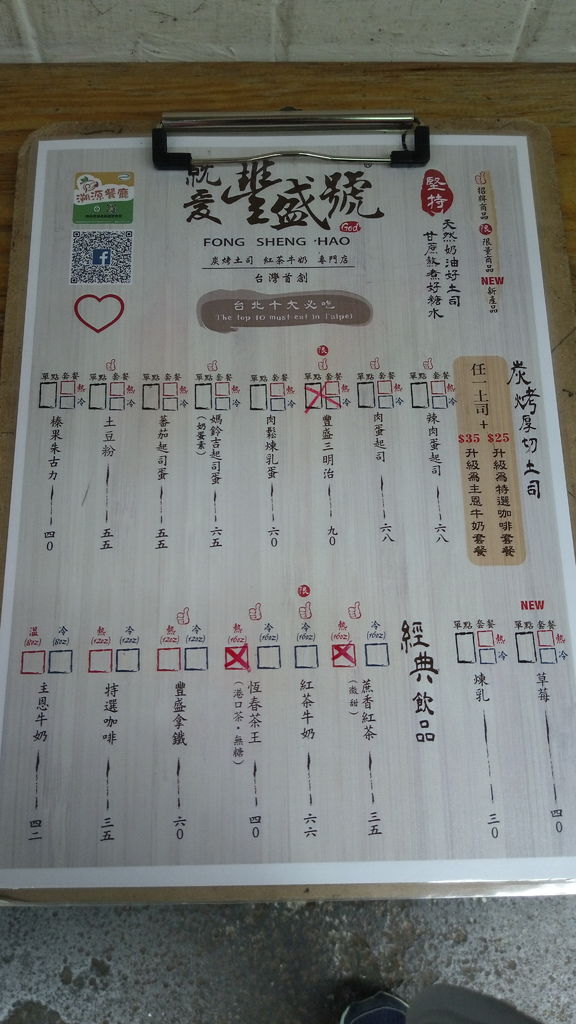 溯源餐廳
就愛豐盛號
God
FONG SHENG HAO
炭烤土司 紅茶牛奶 專門店
台灣首創
台北十大必吃
The top 10 must eat in Taipei
堅持
天然奶油好土司
甘蔗熬煮好糖水
招牌商品
限 限量商品
NEW 新產品
炭烤厚切土司
任一土司+
$25 升級為特選咖啡套餐
$35 升級為主恩牛奶套餐
單點 套餐 熱 冷 辣肉蛋起司 六八
單點 套餐 熱 冷 肉蛋起司 六八
限 單點 套餐 熱 冷 豐盛三明治 九0
單點 套餐 熱 冷 肉鬆煉乳蛋 六0
單點 套餐 熱 冷 媽鈴吉起司蛋 (奶蛋素) 六五
單點 套餐 熱 冷 蕃茄起司蛋 五五
單點 套餐 熱 冷 土豆粉 五五
單點 套餐 熱 冷 榛果朱古力 四0
NEW 單點 套餐 熱 冷 草莓 四0
單點 套餐 熱 冷 煉乳 三0
經典飲品
熱(16oz) 冷(16oz) 蔗香紅茶 (微甜) 三五
限 冷(16oz) 紅茶牛奶 六六
熱(16oz) 冷(16oz) 恆春茶王 (港口茶·無糖) 四0
熱(12oz) 冷(12oz) 豐盛拿鐵 六0
熱(12oz) 冷(12oz) 特選咖啡 三五
溫(8oz) 冷(8oz) 主恩牛奶 四二